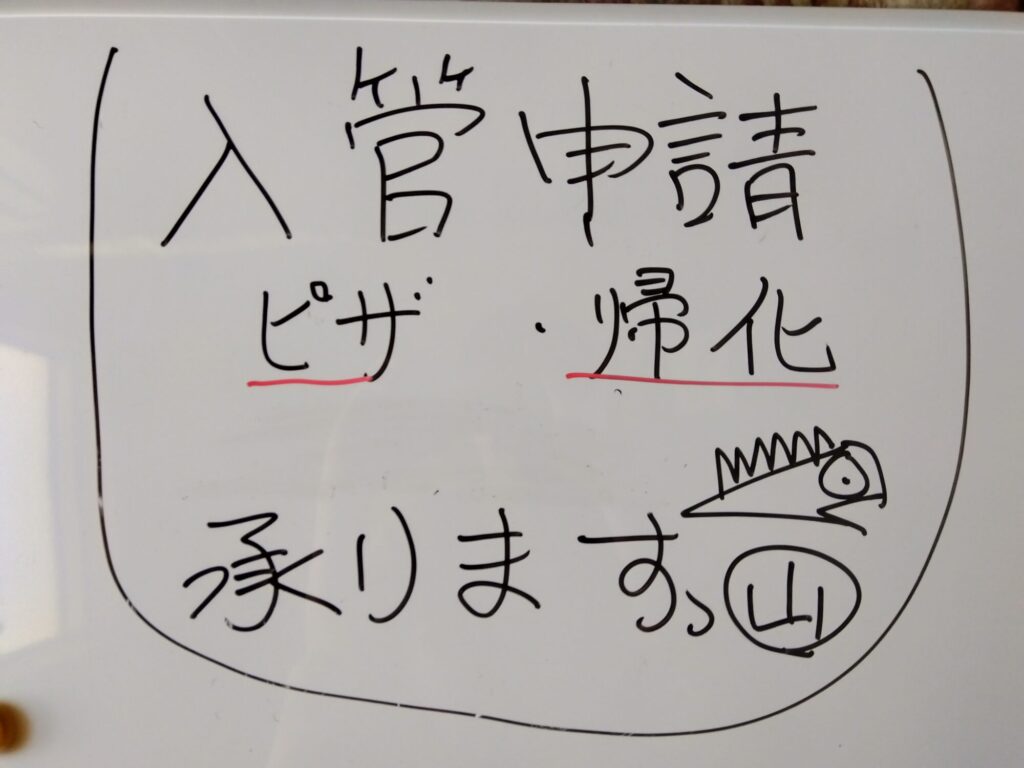 入管申請
ピザ・帰化
承りますっ山